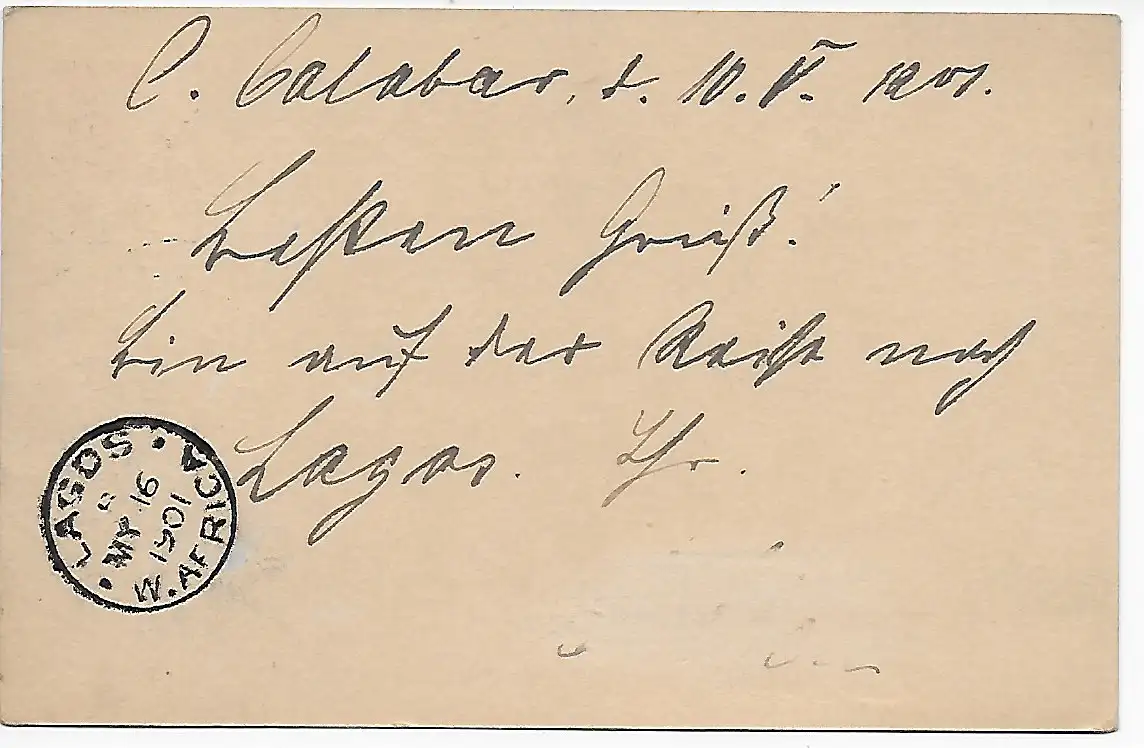 C. Calabar, d. 10. V. 1901.
Besten Gruß!
Bin auf der Reise nach
Lagos. Ihr.
LAGOS · W. AFRICA ·
MY 16
1901